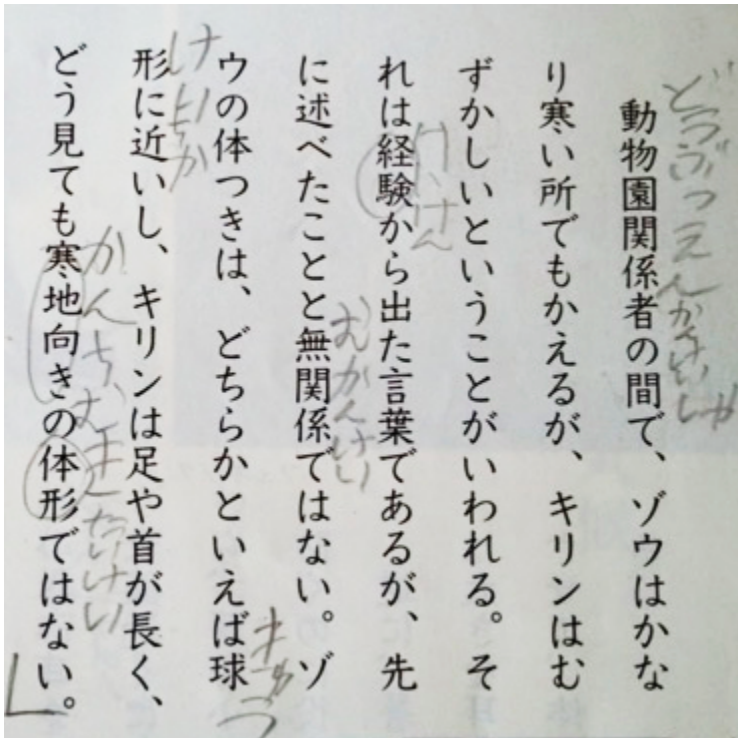 動物園関係者の間で、ゾウはかな
り寒い所でもかえるが、キリンはむ
ずかしいということがいわれる。そ
れは経験から出た言葉であるが、先
に述べたことと無関係ではない。ゾ
ウの体つきは、どちらかといえば球
形に近いし、キリンは足や首が長く、
どう見ても寒地向きの体形ではない。
どうぶつえんかんけいしゃ
けいけん
むかんけい
きゅう
かんちむき
たいけい